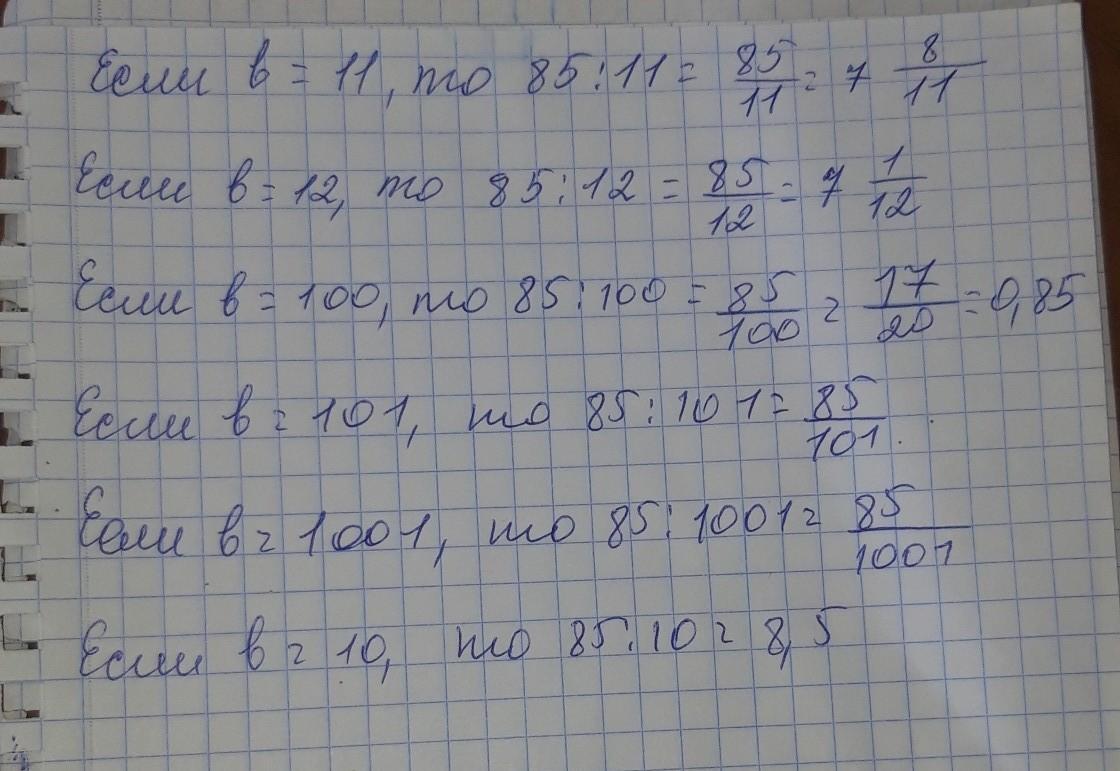 Если в = 11, то 85:11 = 85/11 = 7 8/11
Если в = 12, то 85:12 = 85/12 = 7 1/12
Если в = 100, то 85:100 = 85/100 = 17/20 = 0,85
Если в = 101, то 85:101 = 85/101.
Если в = 1001, то 85:1001 = 85/1001
Если в = 10, то 85:10 = 8,5